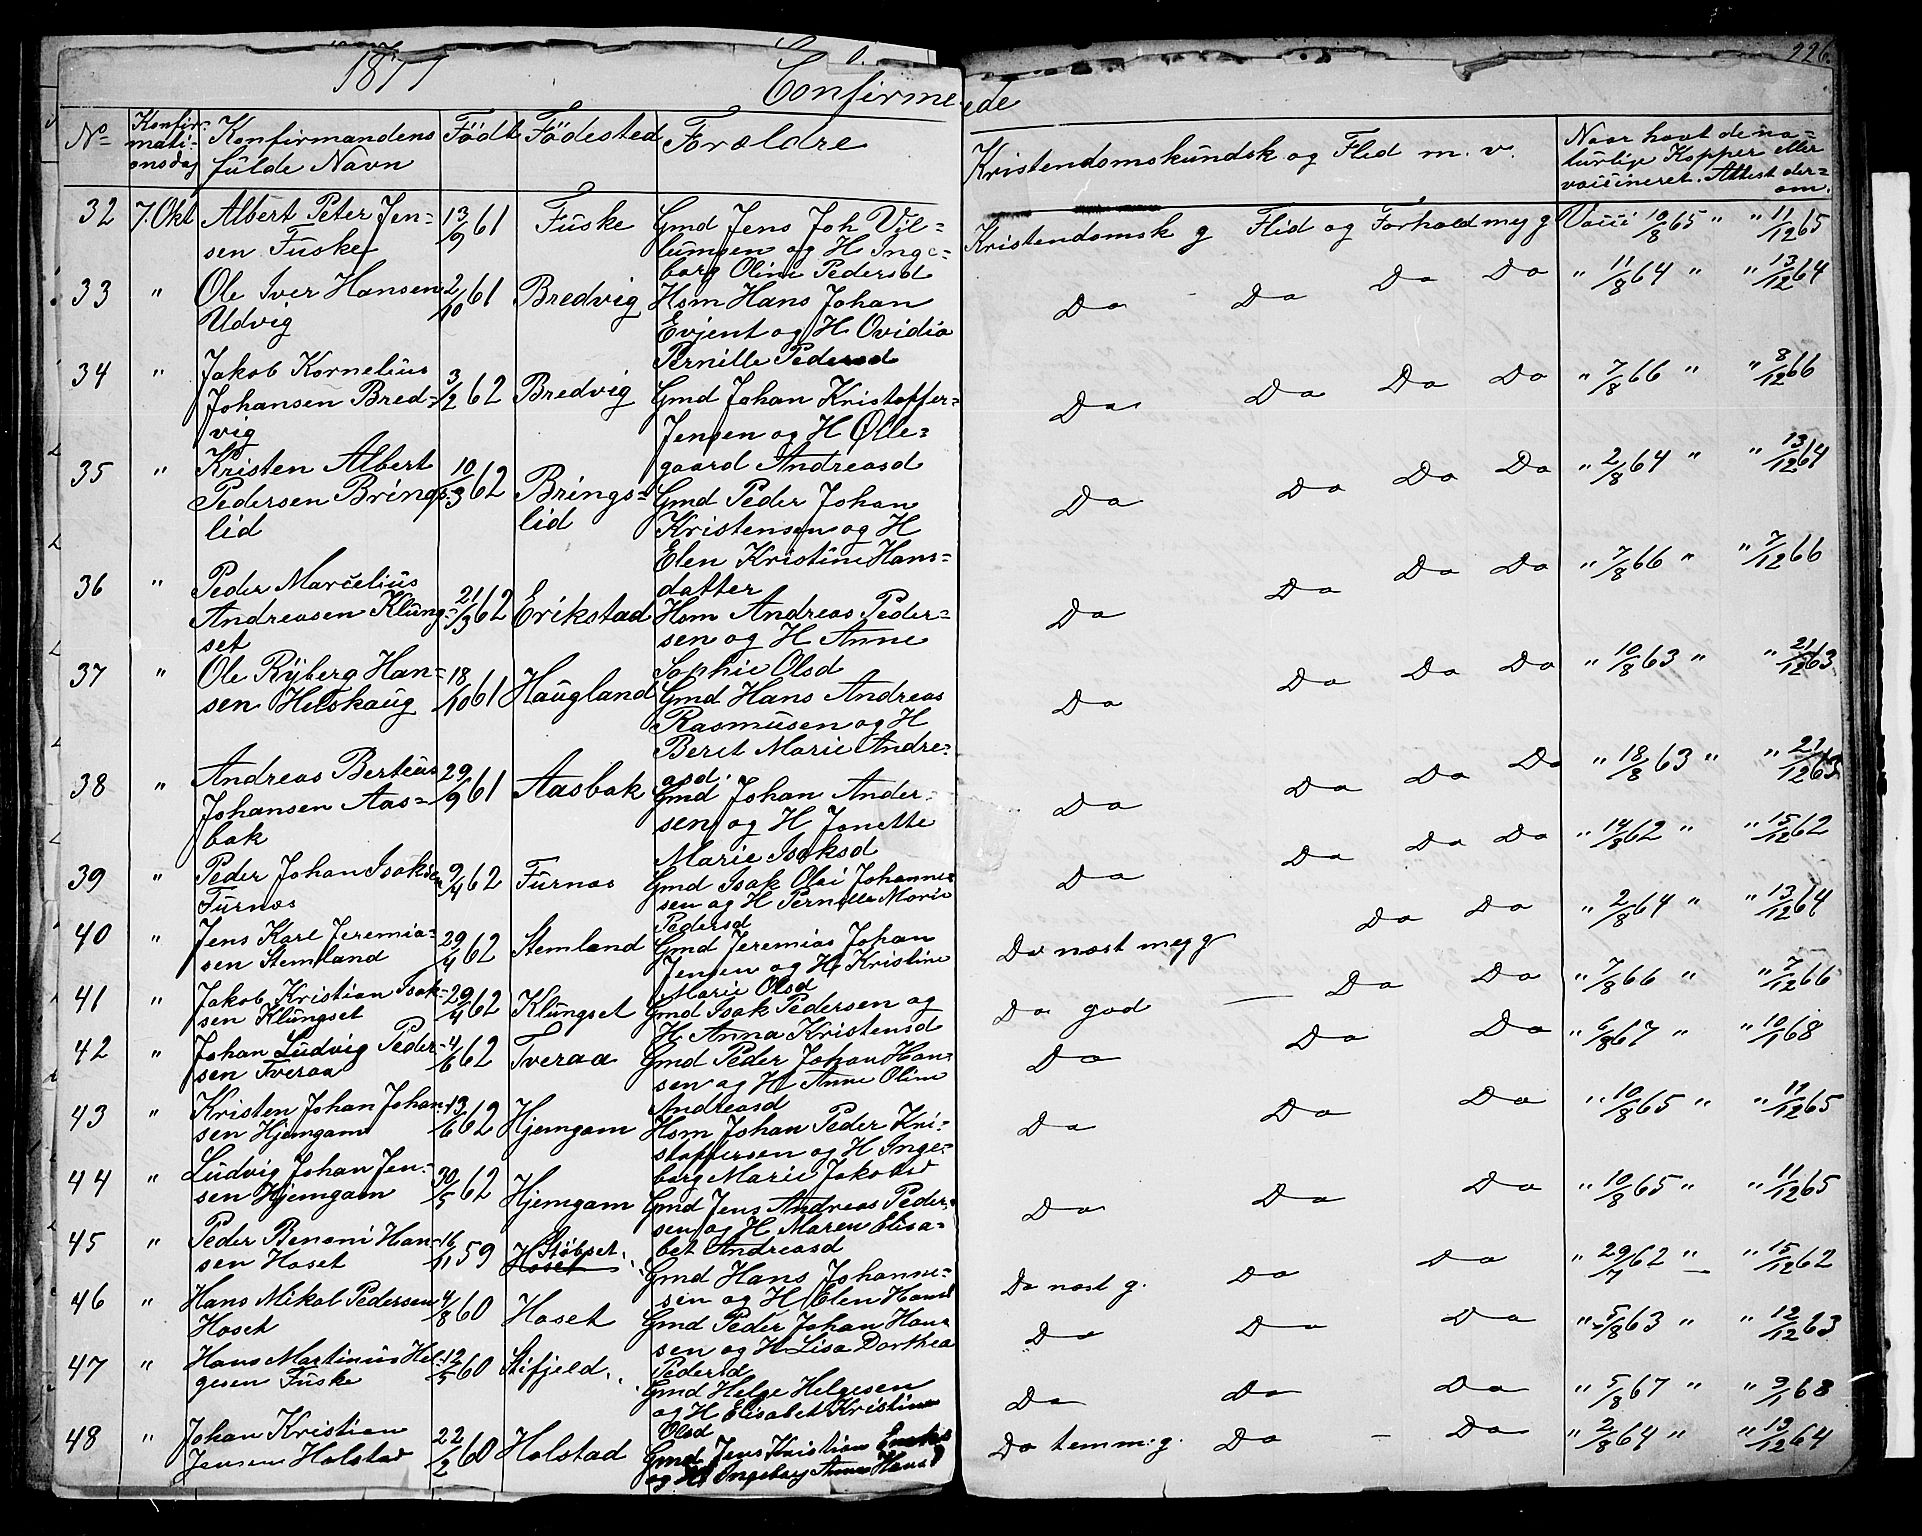 1877
Confirmerede
226.
No
Konfir-
mati-
onsdag
Konfirmandens
fulde Navn
Födt
Födested
Forældre
Kristendomskundsk og Flid m. v.
Naar havt de na-
turlige Kopper eller
vaccineret. Attest der-
om.
32 7. Okt Albert Peter Jen-
sen Fuske
13/9 61 Fuske
Gmd Jens Joh Vil-
lumsen og H Inge-
borg Oline Pedersd
Kristendomsk g Flid og Forhold meg g Vacci 10/8 65 " " 11/12 65
33 " Ole Iver Hansen
Udvig
2/10 61 Bredvig
Hsm Hans Johan
Evjent og H Ovidia
Pernille Pedersd
Do Do Do Do " 11/8 64 " " 13/12 64
34 " Jakob Kornelius
Johansen Bred-
vig
3/2 62 Bredvig
Gmd Johan Kristoffer
Jensen og H Olle-
gaard Andreasd
Do Do Do Do " 7/8 66 " " 8/12 66
35 " Kristen Albert
Pedersen Brings-
lid
10/3 62 Brings-
lid
Gmd Peder Johan
Kristensen og H
Elen Kristine Hans-
datter
Do Do Do Do " 2/8 64 " " 13/12 64
36 " Peder Marcelius
Andreasen Klung-
set
21/3 62 Erikstad
Hsm Andreas Peder-
sen og H Anne
Sophie Olsd
Do Do Do Do " 7/8 66 " " 7/12 66
37 " Ole Ryberg Han-
sen Helskaug
18/10 61 Haugland
Gmd Hans Andreas
Rasmusen og H
Beret Marie Andre-
asd.
Do Do Do Do " 10/8 63 " " 21/12 63
38 " Andreas Berteus
Johansen Aas-
bak
29/9 61 Aasbak
Gmd Johan Ander-
sen og H Jonette
Marie Isaksd
Do Do Do Do " 18/8 63 " " 21/12 63
39 " Peder Johan Isaksen
Furnes
9/4 62 Furnes
Gmd Isak Olai Johanne-
sen og H Pernille Marie
Pedersd
Do Do Do Do " 14/8 62 " " 15/12 62
40 " Jens Karl Jeremia-
sen Stemland
29/4 62 Stemland
Gmd Jeremias Johan
Jensen og H Kristine
Marie Olsd
Do næst meg g Do Do " 2/8 64 " " 13/12 64
41 " Jakob Kristian Isak-
sen Klungset
29/4 62 Klungset
Gmd Isak Pedersen og
H Anna Kristensd
Do god — Do Do " 7/8 66 " " 7/12 66
42 " Johan Ludvig Peder-
sen Tveraa
4/6 62 Tveraa
Gmd Peder Johan Han-
sen og H Anne Oline
Andreasd
Do Do Do " 6/8 67 " " 10/1 68
43 " Kristen Johan Johan-
sen Hjemgam
13/6 62 Hjemgam
Hsm Johan Peder Kri-
stoffersen og H Inge-
borg Marie Jakobsd
Do Do Do " 10/8 65 " " 11/12 65
44 " Ludvig Johan Jen-
sen Hjemgam
30/5 62 Hjemgam
Gmd Jens Andreas Peder-
sen og H Maren Elisa-
bet Andreasd
Do Do Do " 10/8 65 " " 11/12 65
45 " Peder Benoni Han-
sen Hoset
16/11 59 Støbset
Hoset
Gmd Hans Johanne-
sen og H Elen Hansd
Do næst g. Do Do " 29/7 62 " " 15/12 62
46 " Hans Mikal Pedersen
Hoset
4/8 60 Hoset
Gmd Peder Johan Han-
sen og H Lisa Dorthea
Pedersd
Do Do Do " 5/8 63 " " 12/12 63
47 " Hans Martinus Hel-
gesen Fuske
12/5 60 Stifjeld
Gmd Helge Helgesen
og H Elisabet Kristine
Olsd
Do Do Do " 5/8 67 " " 9/1 68
48 " Johan Kristian
Jensen Holstad
22/2 60 Holstad
Gmd Jens Kristian
og H Ingeborg Anne Hansd
Do temm. g. Do - Do " 2/8 64 " " 13/12 64